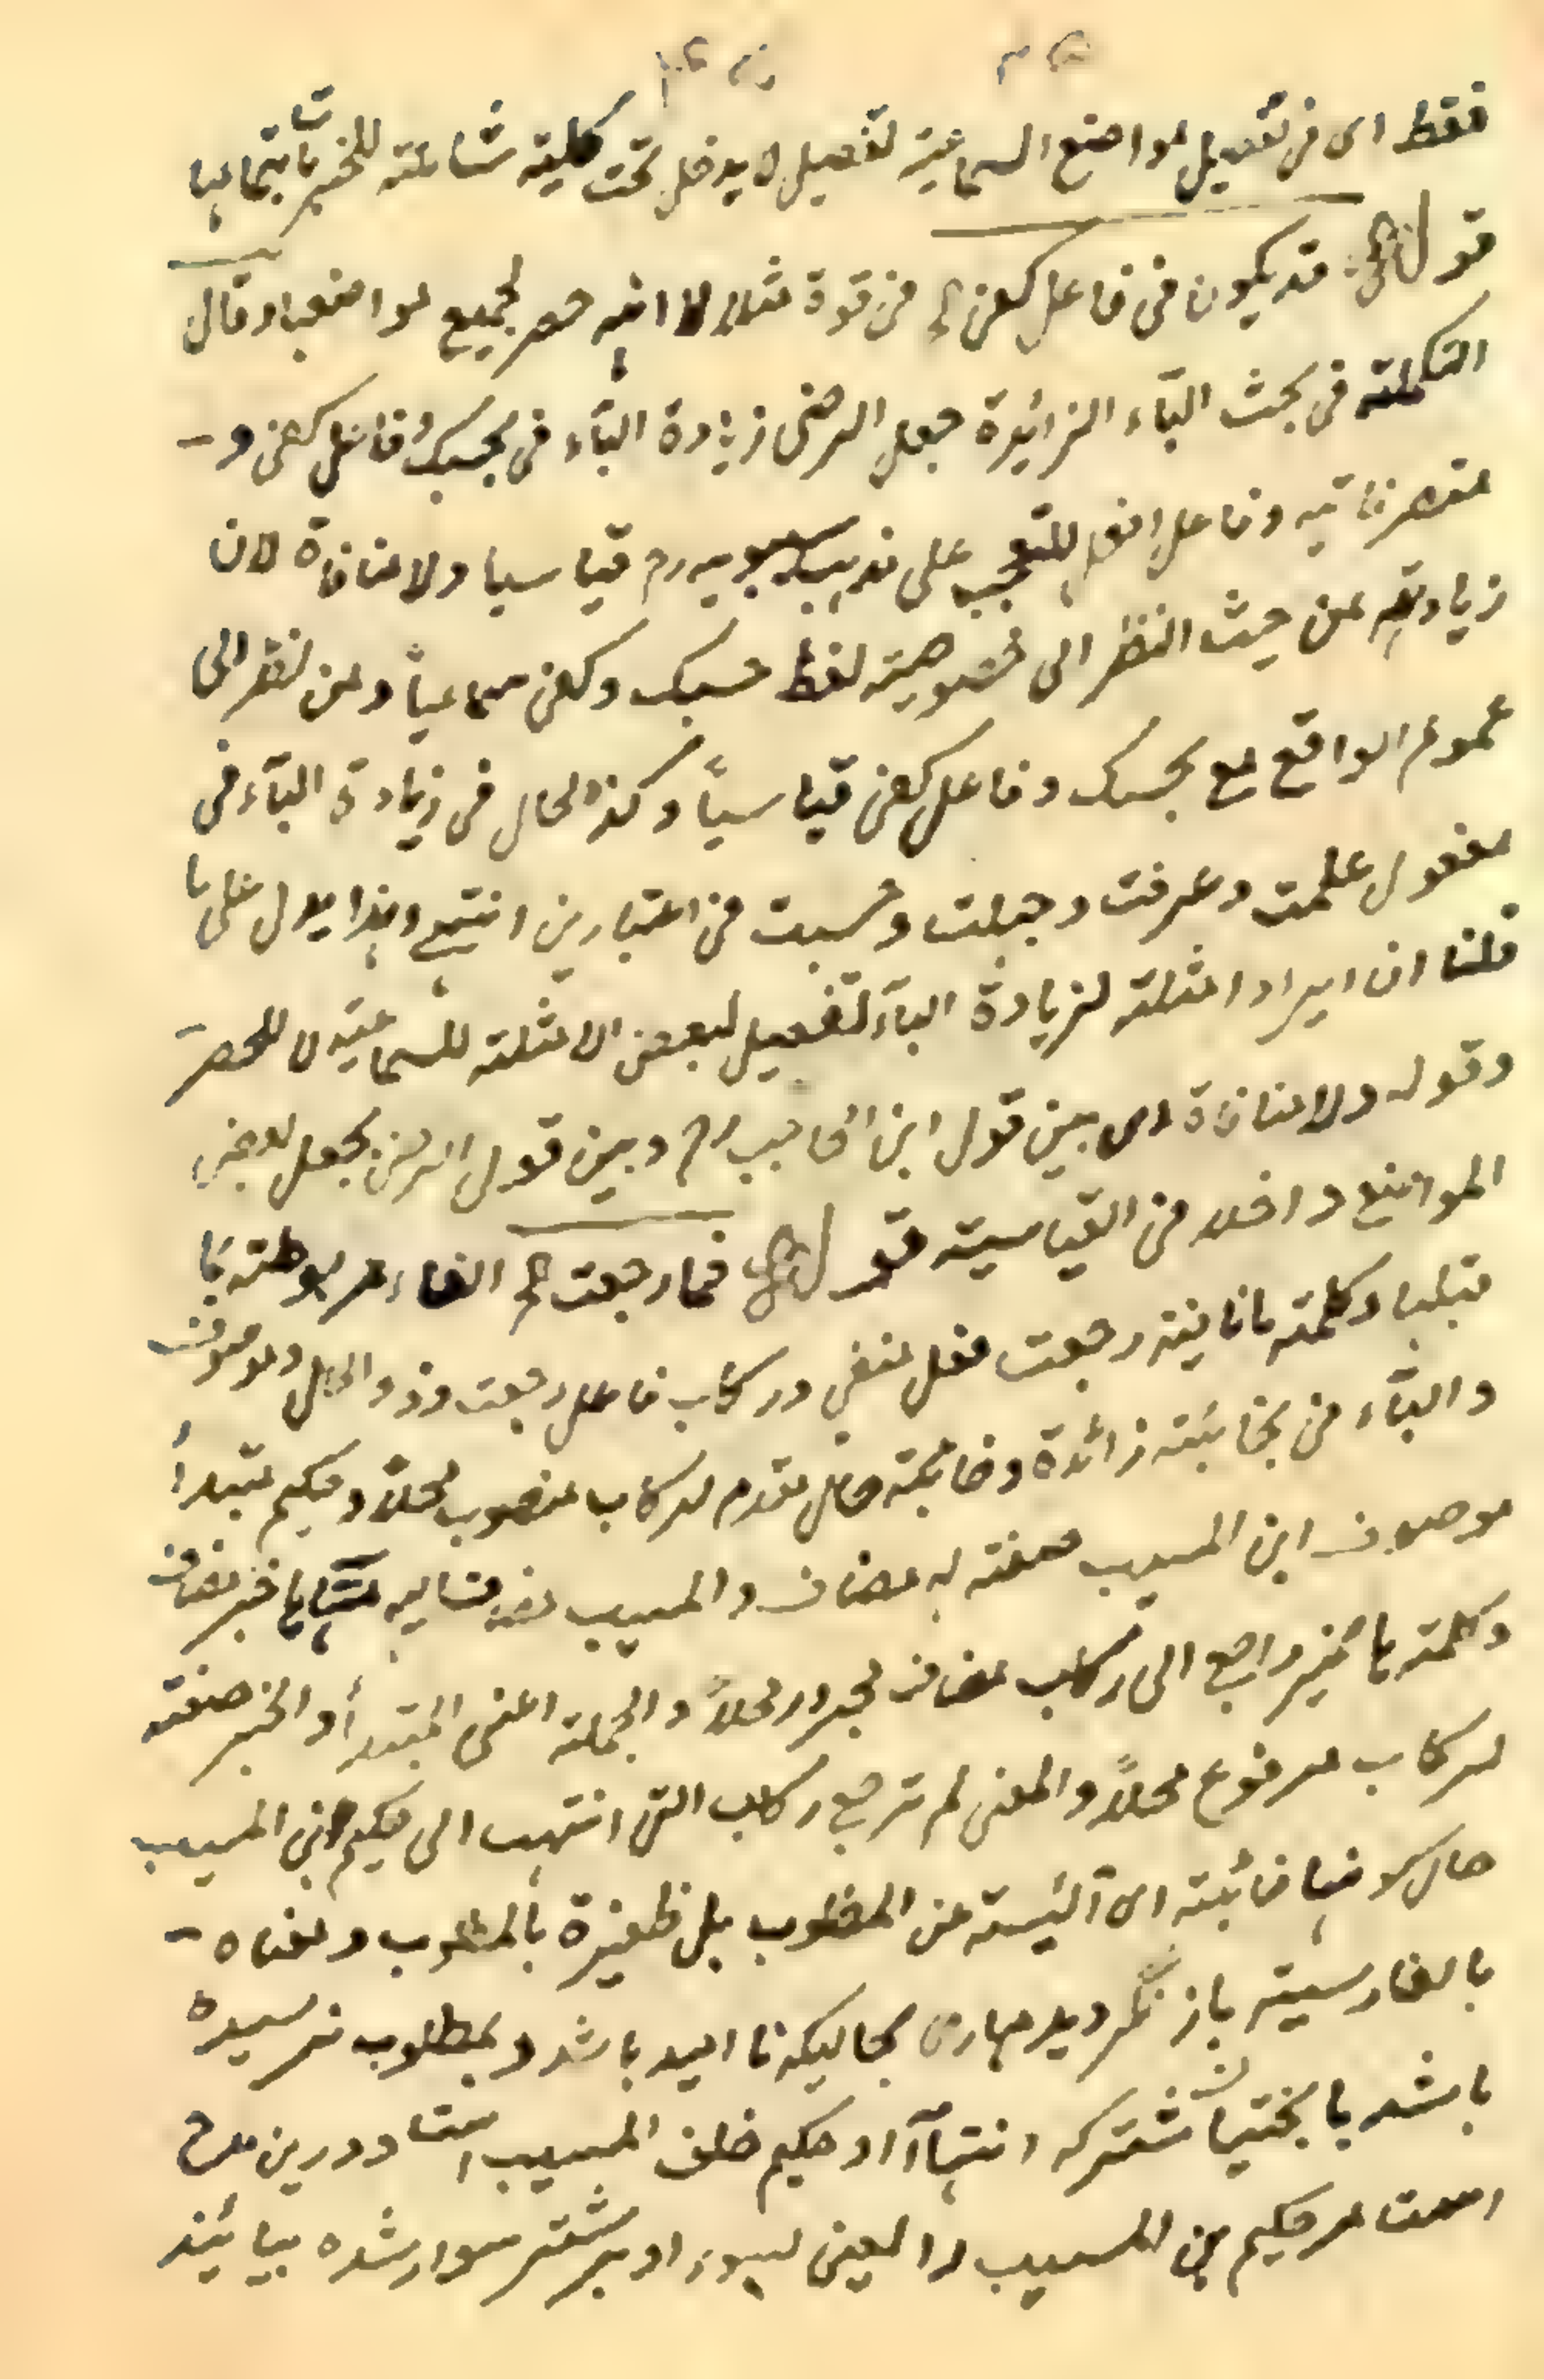 فقط اى فى تفصيل المواضع السماعية تفصيل لا يدخل تحت كلية شاملة للخبر بتمامها
قوله قد يكون فى فاعل كفى الخ فى قوة مثلا لا انه حصر لجميع مواضعها وقال
التكملة فى بحث الباء الزائدة جعل الرضى زيادة الباء فى بحسبك وفاعل كفى و
متصرفاته وفاعل افعل للتعجب على مذهب سيبويه رح قياسيا ولا منافاة لان
زيادته من حيث النظر الى خصوصية لفظ حسبك وكفى سماعياً ومن نظر الى
عموم الواقع مع بحسبك وفاعل كفى قياسياً وكذا الحال فى زيادة الباء فى
مفعول علمت وعرفت وجهلت وحسبت من اعتبارين انتهى وهذا يدل على ما
قلنا ان ايراد امثلة لزيادة الباء تفصيل لبعض الامثلة للسماعية لا للحصر
وقوله ولا منافاة اى بين قول ابن الحاجب رح وبين قول الرضى بجعل بعض
المواضع داخلا فى القياسية قوله فما رجعت الخ الفاء مربوطة بما
قبلها وكلمة ما نافية رجعت فعل منفى وركاب فاعل رجعت وذو الحال وموصوف
والباء فى بخائبة زائدة وخائبة حال مقدم لركاب منصوب محلاً وحكيم مبتدأ
موصوف ابن المسيب صفة له مضاف والمسيب مضاف اليه منتهاها خبر مضاف
وكلمة ها ضمير راجع الى ركاب مضاف مجرور محلاً والجملة اعنى المبتدأ والخبر صفة
لركاب مرفوع محلاً والمعنى لم ترجع ركاب التى انتهت الى حكيم ابن المسيب
حال كونها خائبة اى آئيسة عن المطلوب بل ظفيرة بالمطلوب ومعناه
بالفارسية باز نگرديد مهارى بحاليكه نا اميد باشد و بمطلوب نرسيده
باشد يا بختيا شتركه انتهاآ او حكيم خلف المسيب است ودرين مدح
است مر حكيم بن المسيب را يعنى بسوى او بر شتر سوار شده بيايند